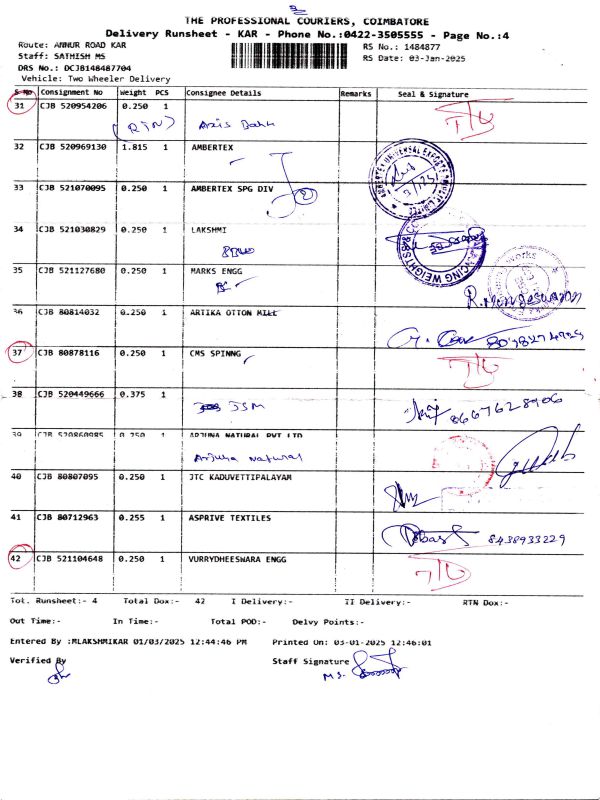 THE PROFESSIONAL COURIERS, COIMBATORE
Delivery Runsheet - KAR - Phone No.:0422-3505555 - Page No.:4
Route: ANNUR ROAD KAR
RS No.: 1484877
Staff: SATHISH MS
RS Date: 03-Jan-2025
DRS No.: DCJB148487704
Vehicle: Two Wheeler Delivery
S No Consignment No Weight PCS Consignee Details Remarks Seal & Signature
31 CJB 520954206 0.250 1
(RTN)
32 CJB 520969130 1.815 1 AMBERTEX
33 CJB 521070095 0.250 1 AMBERTEX SPG DIV
34 CJB 521030829 0.250 1 LAKSHMI
35 CJB 521127680 0.250 1 MARKS ENGG
36 CJB 80814032 0.250 1 ARTIKA OTTON MILL
37 CJB 80878116 0.250 1 CMS SPINNG
38 CJB 520449666 0.375 1
JSM 8667628906
39 CJB 520860985 0.250 1 ARJUNA NATURAL PVT LTD
Arjuna Natural
40 CJB 80807095 0.250 1 JTC KADUVETTIPALAYAM
41 CJB 80712963 0.255 1 ASPRIVE TEXTILES
8438933229
42 CJB 521104648 0.250 1 VURRYDHEESWARA ENGG
Tot. Runsheet:- 4 Total Dox:- 42 I Delivery:- II Delivery:- RTN Dox:-
Out Time:- In Time:- Total POD:- Delvy Points:-
Entered By :MLAKSHMIKAR 01/03/2025 12:44:46 PM Printed On: 03-01-2025 12:46:01
Verified By Staff Signature